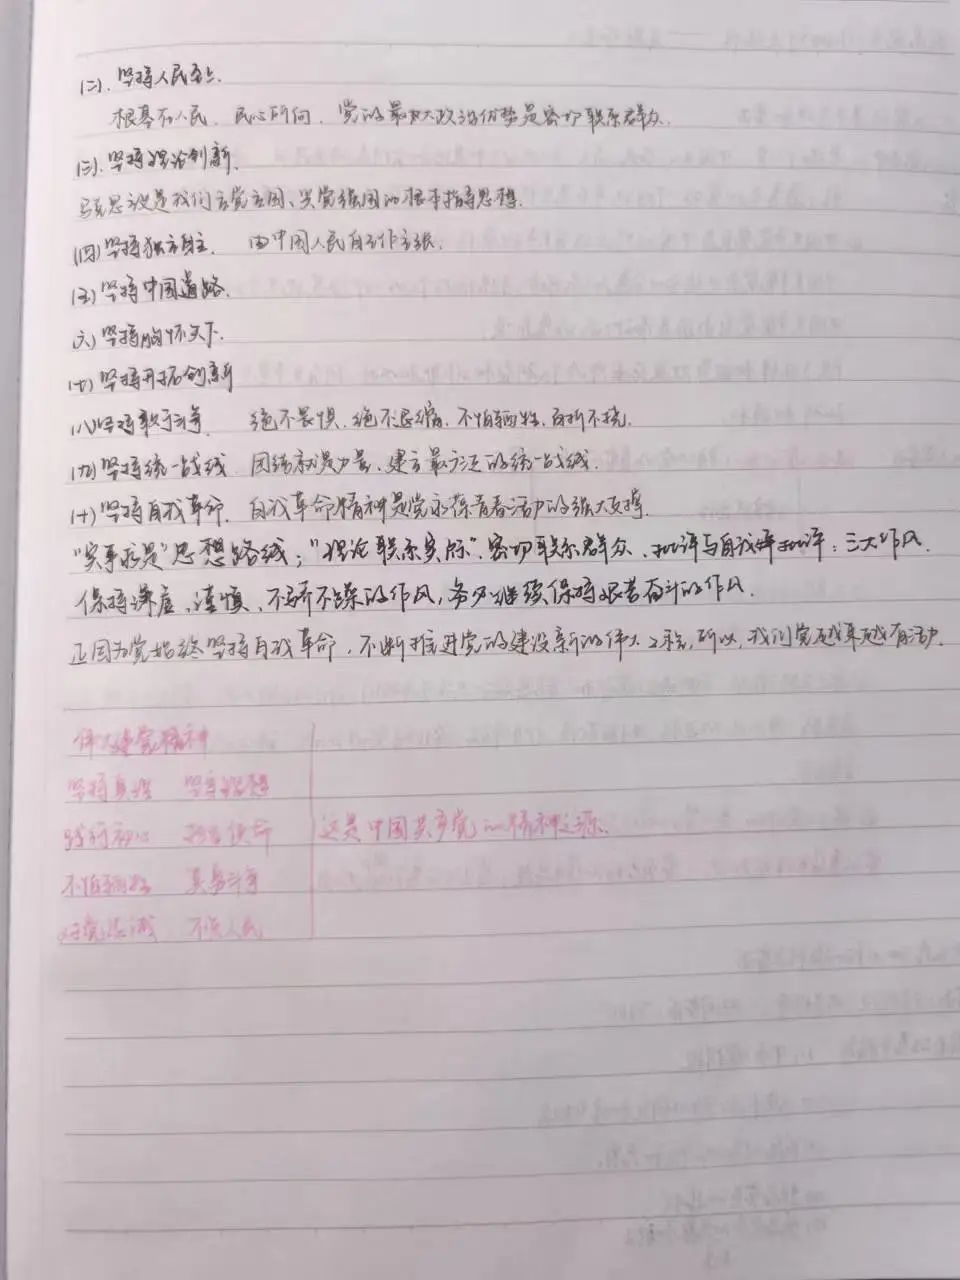 (二). 坚持人民至上.
根基在人民, 民心所向, 党的最大政治优势是密切联系群众.
(三). 坚持理论创新.
马克思主义是我们立党立国、兴党强国的根本指导思想.
(四) 坚持独立自主. 由中国人民自己作主张.
(五) 坚持中国道路.
六) 坚持胸怀天下.
(七) 坚持开拓创新
(八) 坚持敢于斗争. 绝不畏惧, 绝不退缩, 不怕牺牲, 百折不挠.
(九) 坚持统一战线. 团结就是力量, 建立最广泛的统一战线.
(十) 坚持自我革命. 自我革命精神是党永葆青春活力的强大支撑.
"实事求是"思想路线; "理论联系实际"、密切联系群众、批评与自我批评: 三大作风.
保持谦虚、谨慎、不骄不躁的作风, 务必继续保持艰苦奋斗的作风.
正因为党始终坚持自我革命, 不断推进党的建设新的伟大工程, 所以, 我们党越来越有活力.
伟大建党精神
坚持真理 坚守理想
践行初心 担当使命 这是中国共产党的精神之源.
不怕牺牲 英勇斗争
对党忠诚 不负人民